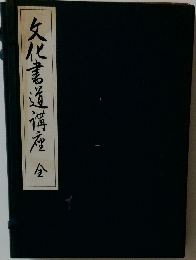 文化書道講座 全